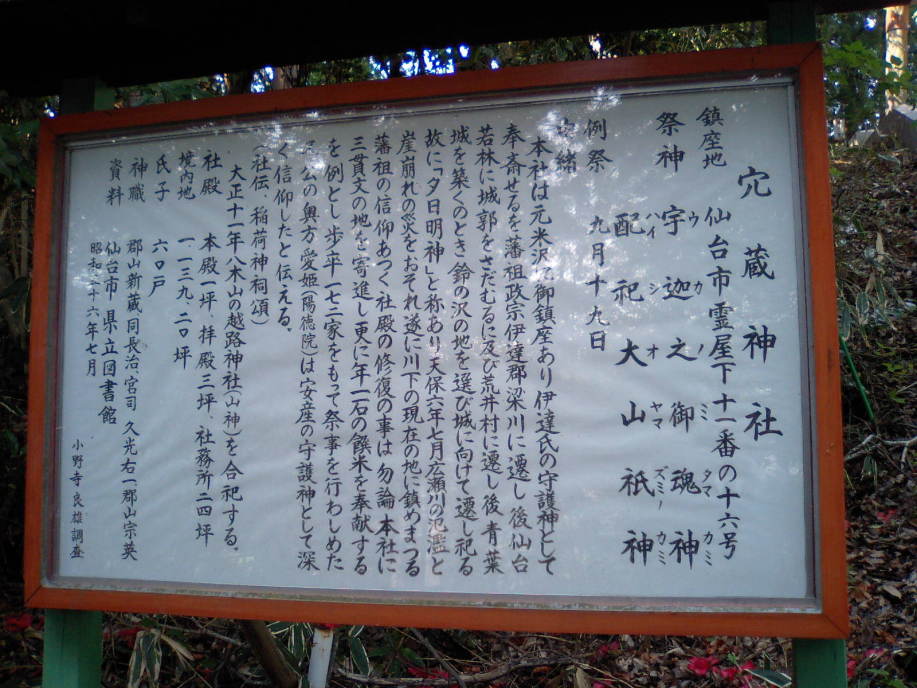 穴蔵神社
鎮座地 仙台市霊屋下十一番の十六号
祭神 宇迦之御魂神
ウカノミタマカミ
配祀 大山祇神
ハイシ オオヤマズミノカミ
例祭 九月十九日
由緒
本社は元米沢に御鎮座あり伊達氏の守護神として
奉斎せるを藩祖政宗伊達郡梁川に遷し後仙台
若林に城郭をさだむるに及び荒井村に遷し後青葉
城を築くのとき鈴の沢の地を選び城に向けて遷し祀る
故に「夕日明神」と称あり天保六年七月広瀬川の氾濫と
崖崩れの災をおそれ遂に川下の現在の地に鎮めまつる
藩祖の信仰あつく社殿の修復の事は勿論本社に
三貫文の地を寄進し更に年一石の饌米を奉献する
を例とし歩卒一七三家をもって祭事を行わしめた
公の奥方愛姫(陽徳院)は安産の守護神として深
く信仰したと伝える。
(社伝 稲荷神祠頌)
大正十一年八木山の越路神社(山神)を合祀する。
社殿 本殿一坪 拝殿三坪 社務所二四坪
境内地 一一三九・二〇坪
氏子 六〇戸
神職 郡山新蔵 同長治 宮司 久光右一 郡山宗英
資料 仙台市・県立図書館
昭和五十六年七月
小野寺良雄調査